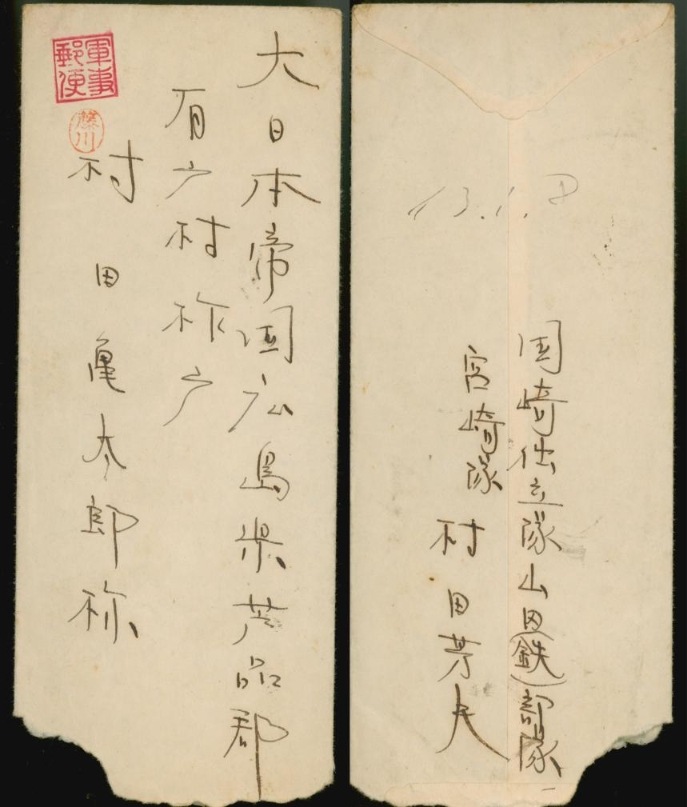 軍事郵便
大日本帝国広島県芦品郡
有广村柞广
村田亀太郎様
13.1.8
国崎独立隊山田(鉄)部隊
宮崎隊 村田芳夫